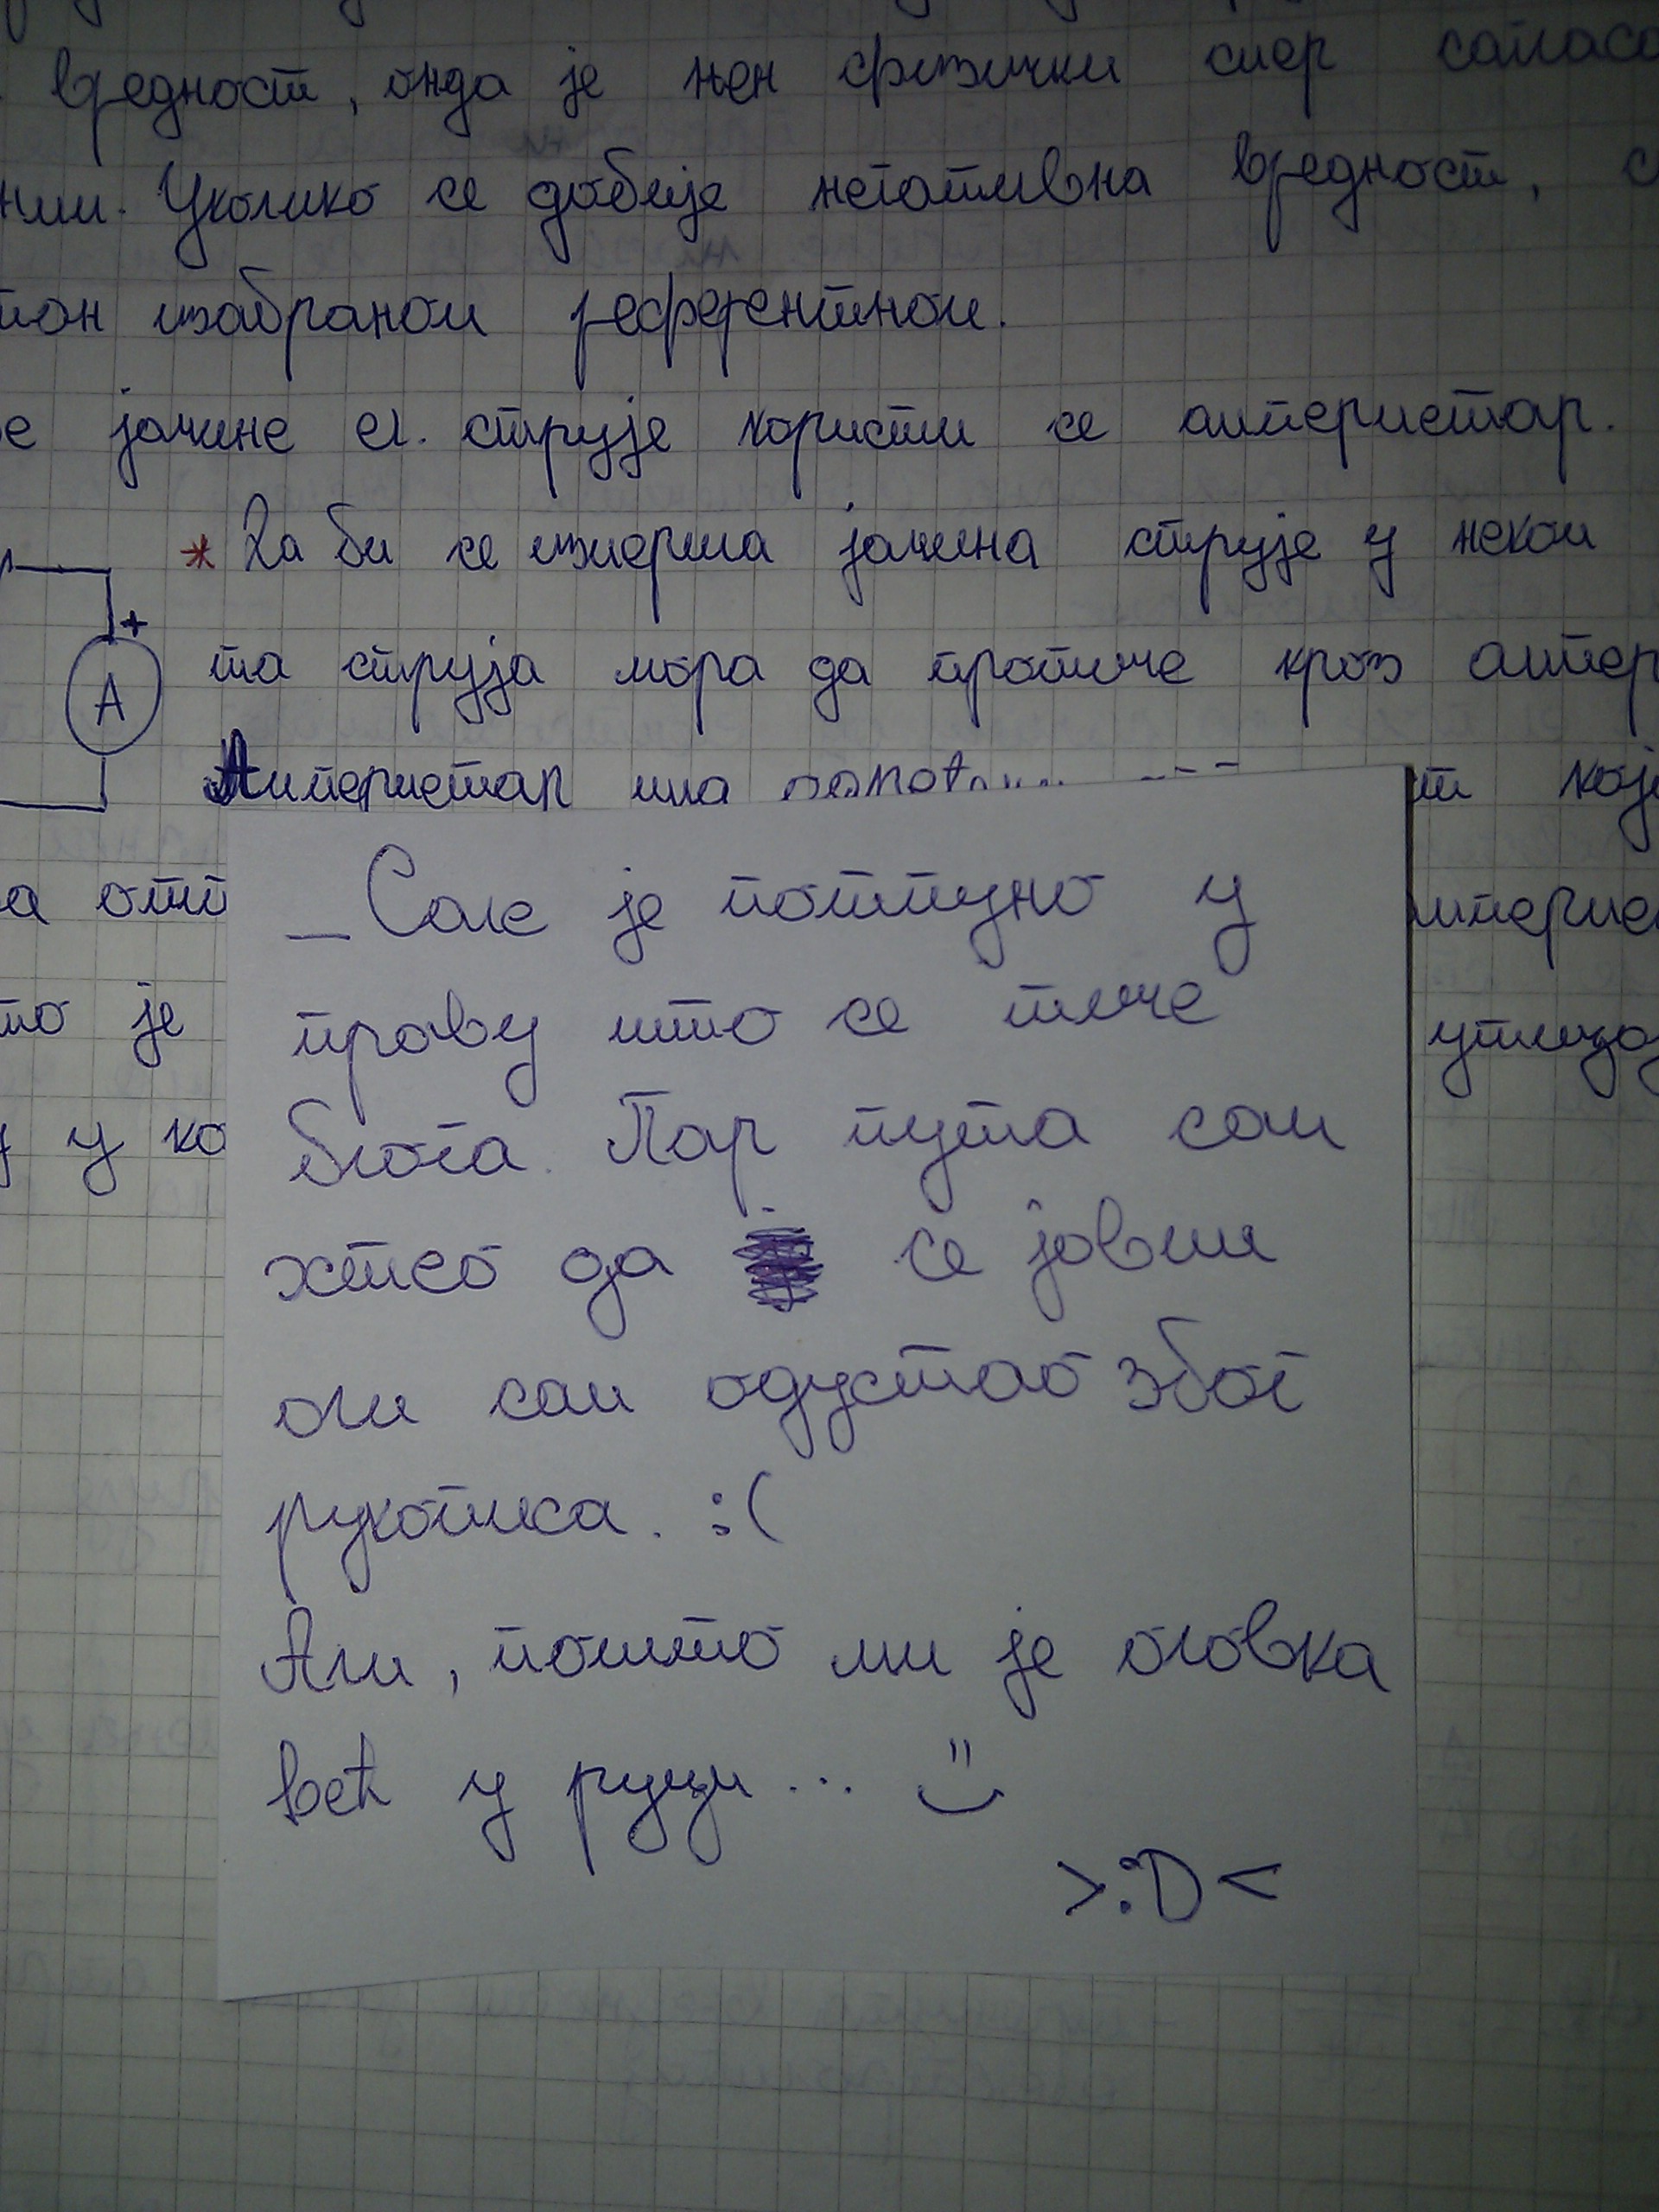 вредност, онда је њен физички смер сагласа
Уколико се добије негативна вредност, с
изабраном референтном.
е јачине ел. струје користи се амперметар.
* Да би се измерила јачина струје у неком
+
A
та струја мора да протиче кроз ампер
Амперметар има која
а отп амперме
то је утицај
у ко
_Сале је потпуно у
праву што се тиче
блога. Пар пута сам
хтео да се јавим
али сам одустао због
рукописа. :(
Али, пошто ми је оловка
већ у руци... =)
>:D<